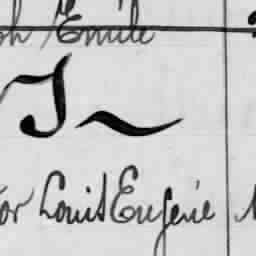 ph Emile
J~
or Louis Eugénie